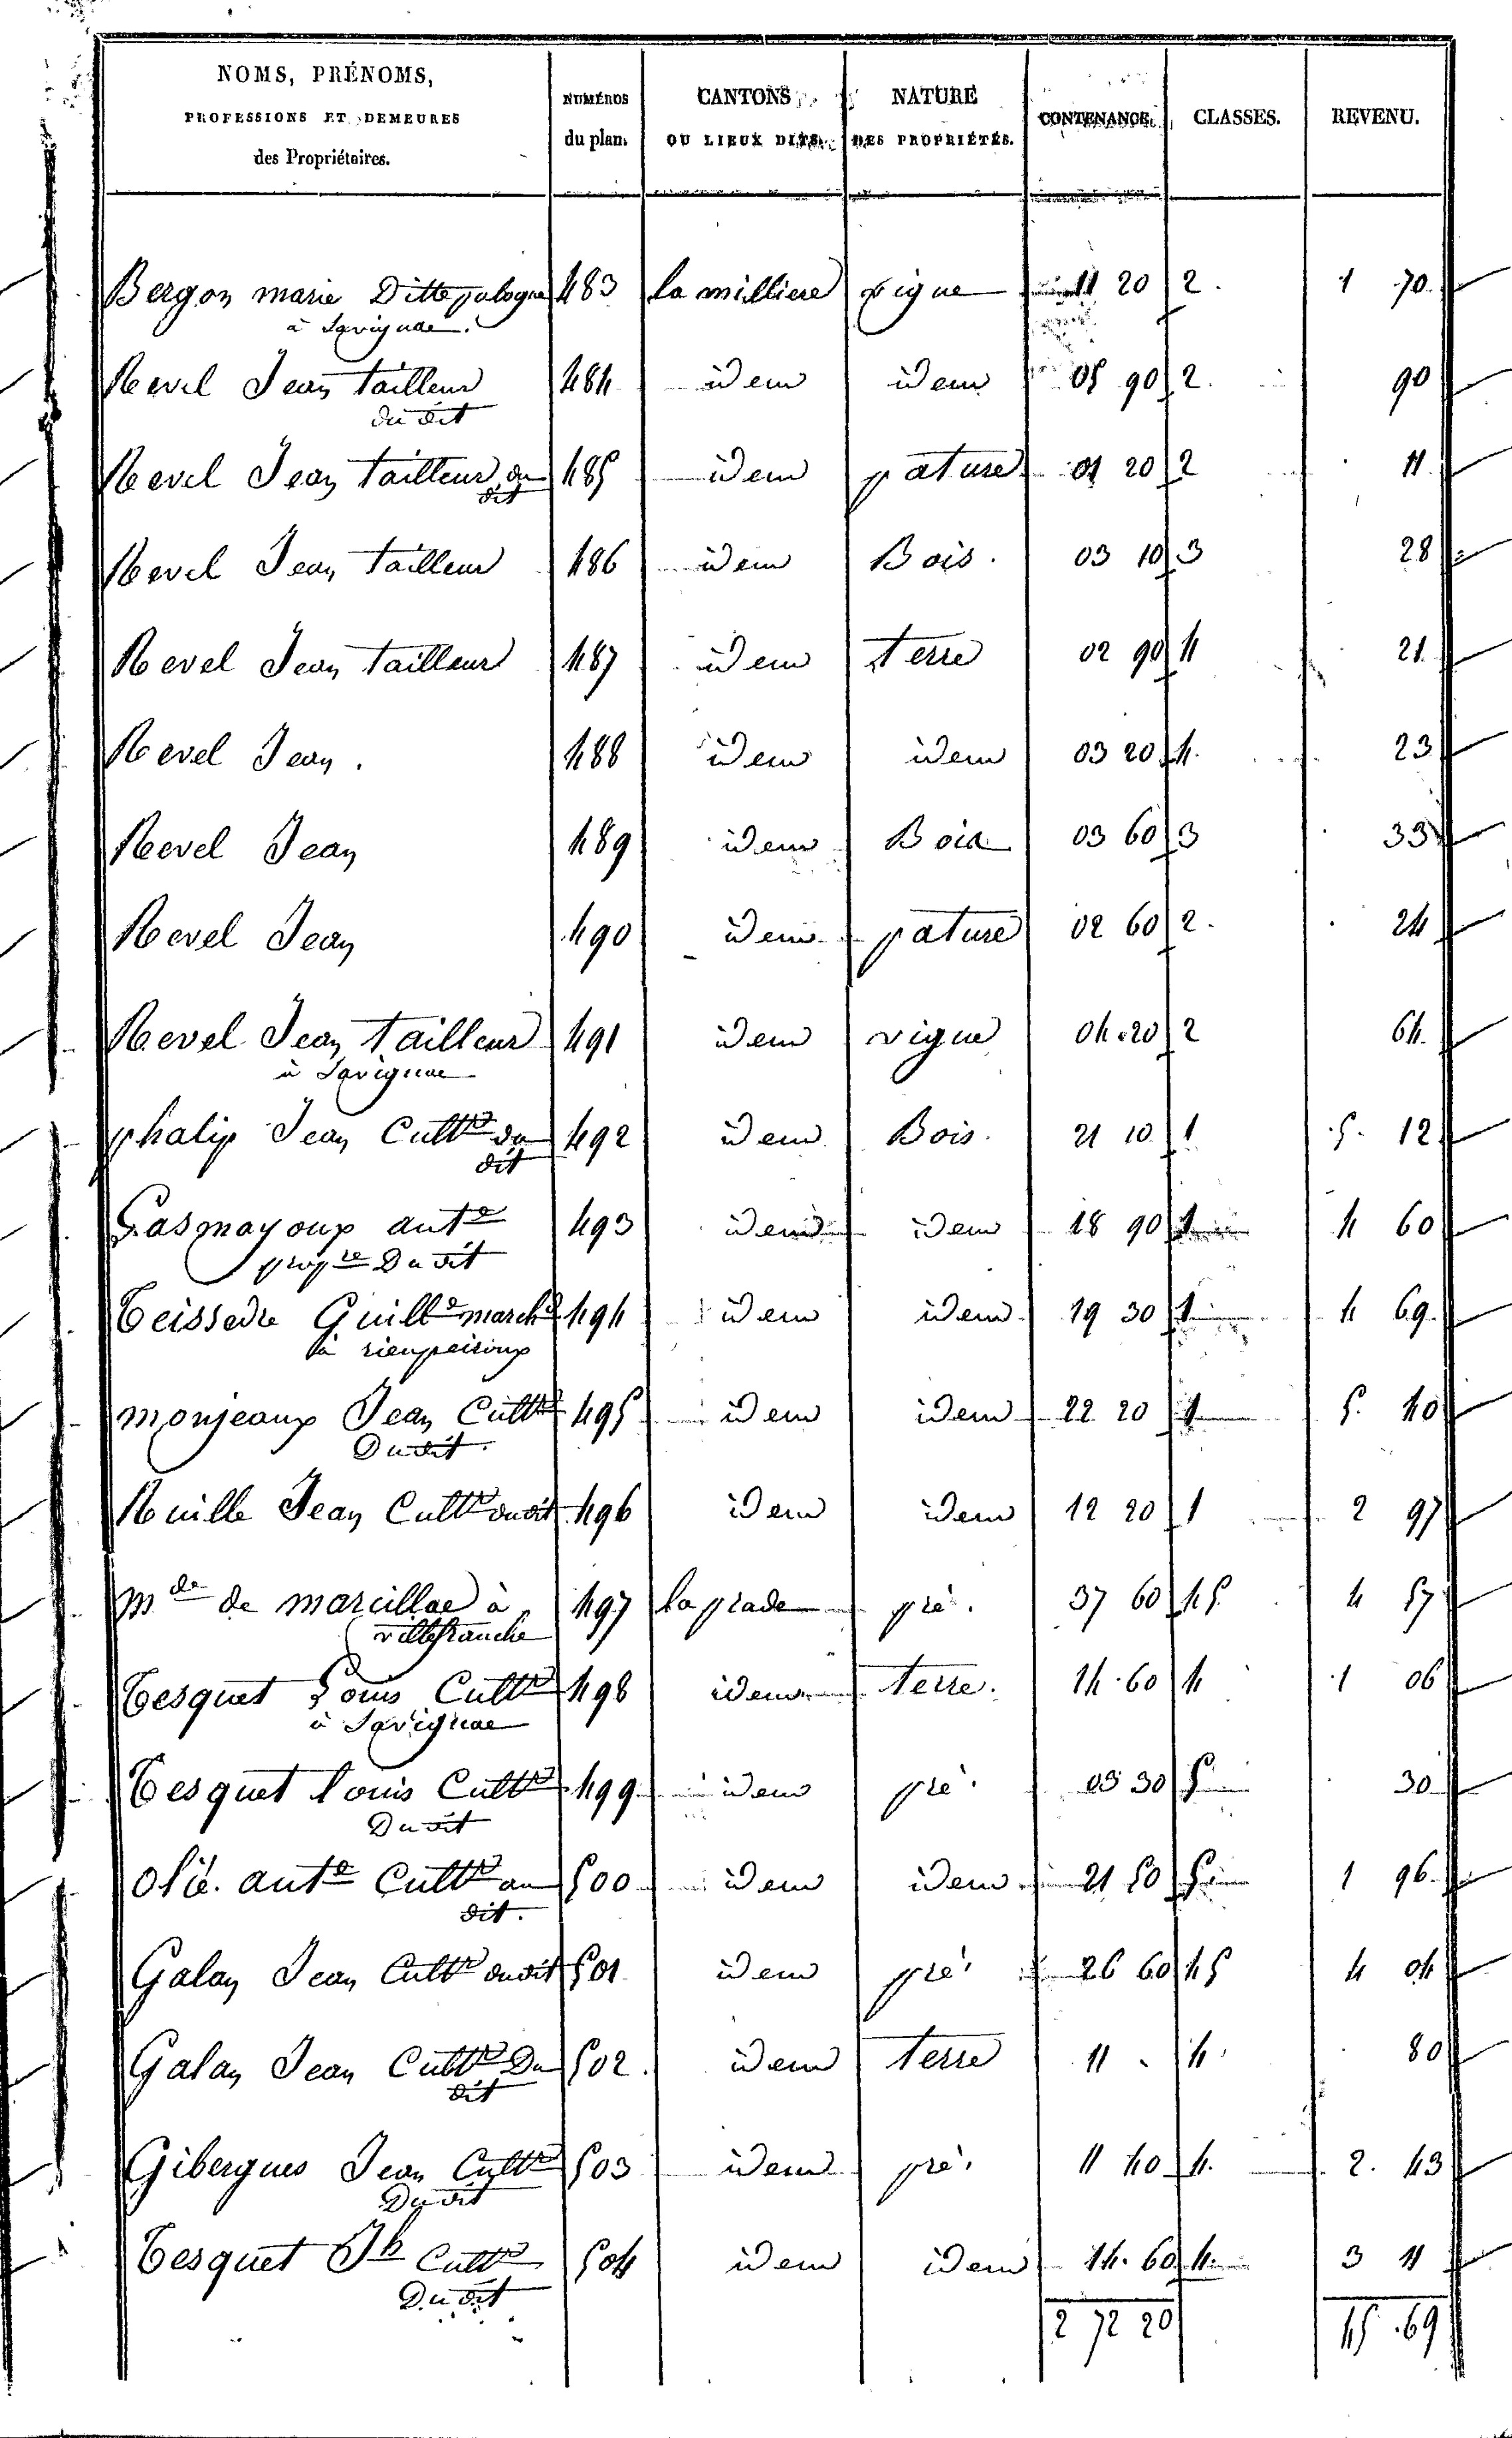 NOMS, PRÉNOMS, PROFESSIONS ET DEMEURES des Propriétaires. NUMÉROS du plan. CANTONS OU LIEUX DITS. NATURE DES PROPRIÉTÉS. CONTENANCE. CLASSES. REVENU.
Bergon marie Ditte 483 la milliere vigne 11 20 2. 1 70
à Savignac.
Revel Jean tailleur 484 idem idem 05 90 2. 90
du dit
Revel Jean tailleur du 485 idem pature 01 20 2 11
dit
Revel Jean tailleur 486 idem Bois. 03 10 3 28
Revel Jean tailleur 487 idem terre 02 90 4 21
Revel Jean. 488 idem idem 03 20 4. 23
Revel Jean 489 idem Bois 03 60 3 33
Revel Jean 490 idem pature 02 60 2. 24
Revel Jean tailleur 491 idem vigne 04 20 2 64
à Savignac
phalip Jean Cultr du 492 idem Bois. 21 10 1 5. 12
dit
Lasmayoux ante 493 idem idem 18 90 1 4 60
propre Du dit
Teissedre Guille march 494 idem idem 19 30 1 4 69
à rieupeiroux
monjeaux Jean Cultr 495 idem idem 22 20 1 5. 40
Du dit.
Ruille Jean Cultr du dit 496 idem idem 12 20 1 2 97
mde de marcillac à 497 la prade pré. 37 60 4 5. 4 57
villefranche
Tesquet Louis Cultr 498 idem terre. 14 60 4 1 06
à Savignac
Tesquet Louis Cultr 499 idem pré. 03 30 5 30
Du dit
ante Cultr au 500 idem idem 21 50 5 1 96
dit.
Galan Jean Cultr du dit 501 idem pré 26 60 4 5 4 04
Galan Jean Cultr Du 502. idem terre 11 . 4. 80
dit
Gibergues Jean Cultr 503 idem pré. 11 40 4. 2. 43
Du dit
Tesquet Jh Cultr 504 idem idem 14. 60 4. 3 11
Du dit
2 72 20 45.69